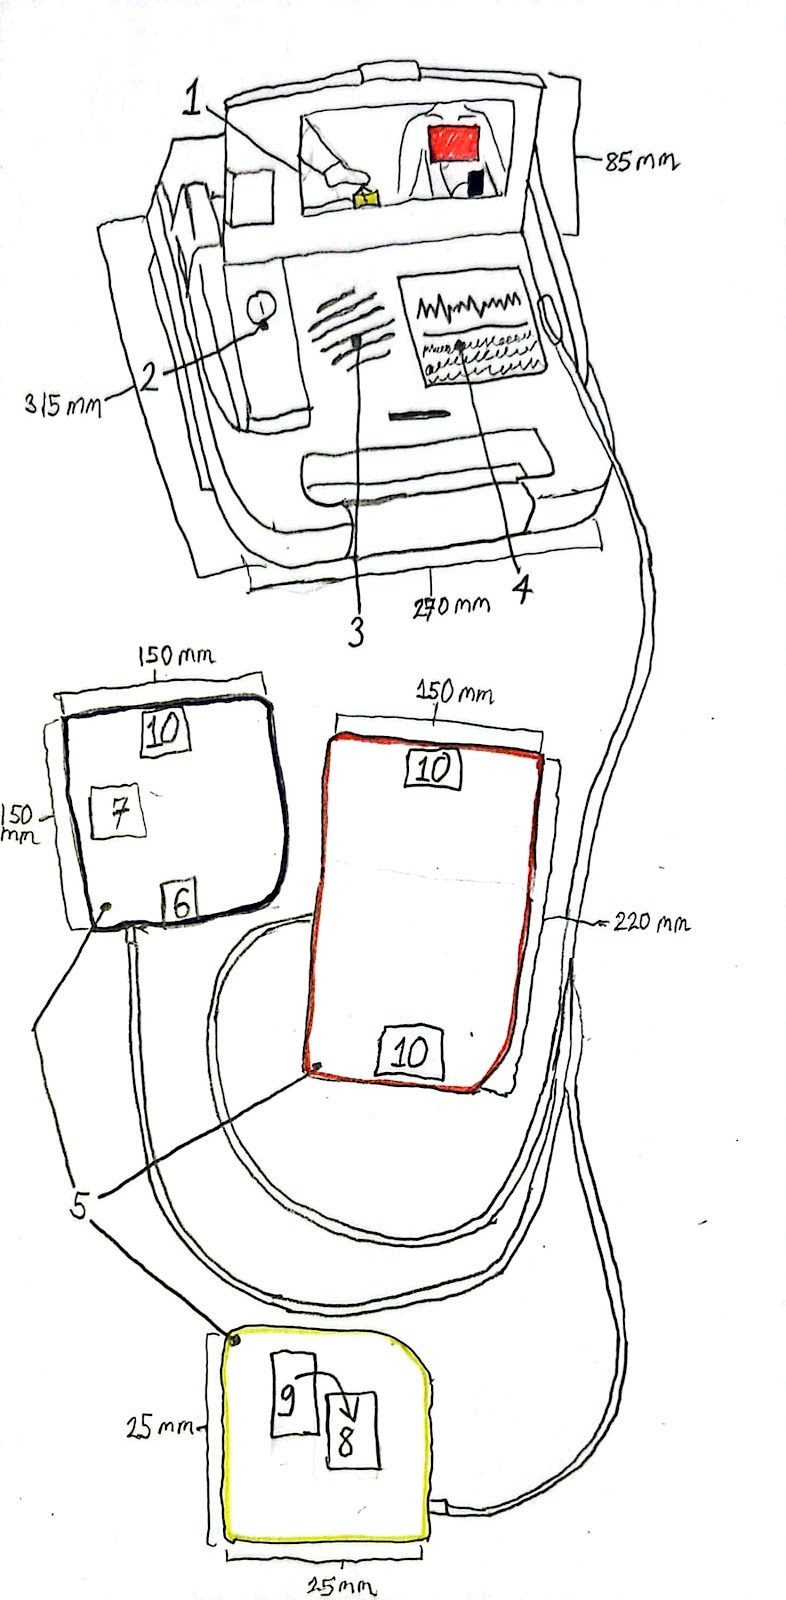 1
85 mm
2
315 mm
4
270 mm
3
150 mm
150 mm
10
10
7
150
mm
6
220 mm
10
5
9
8
25 mm
25 mm